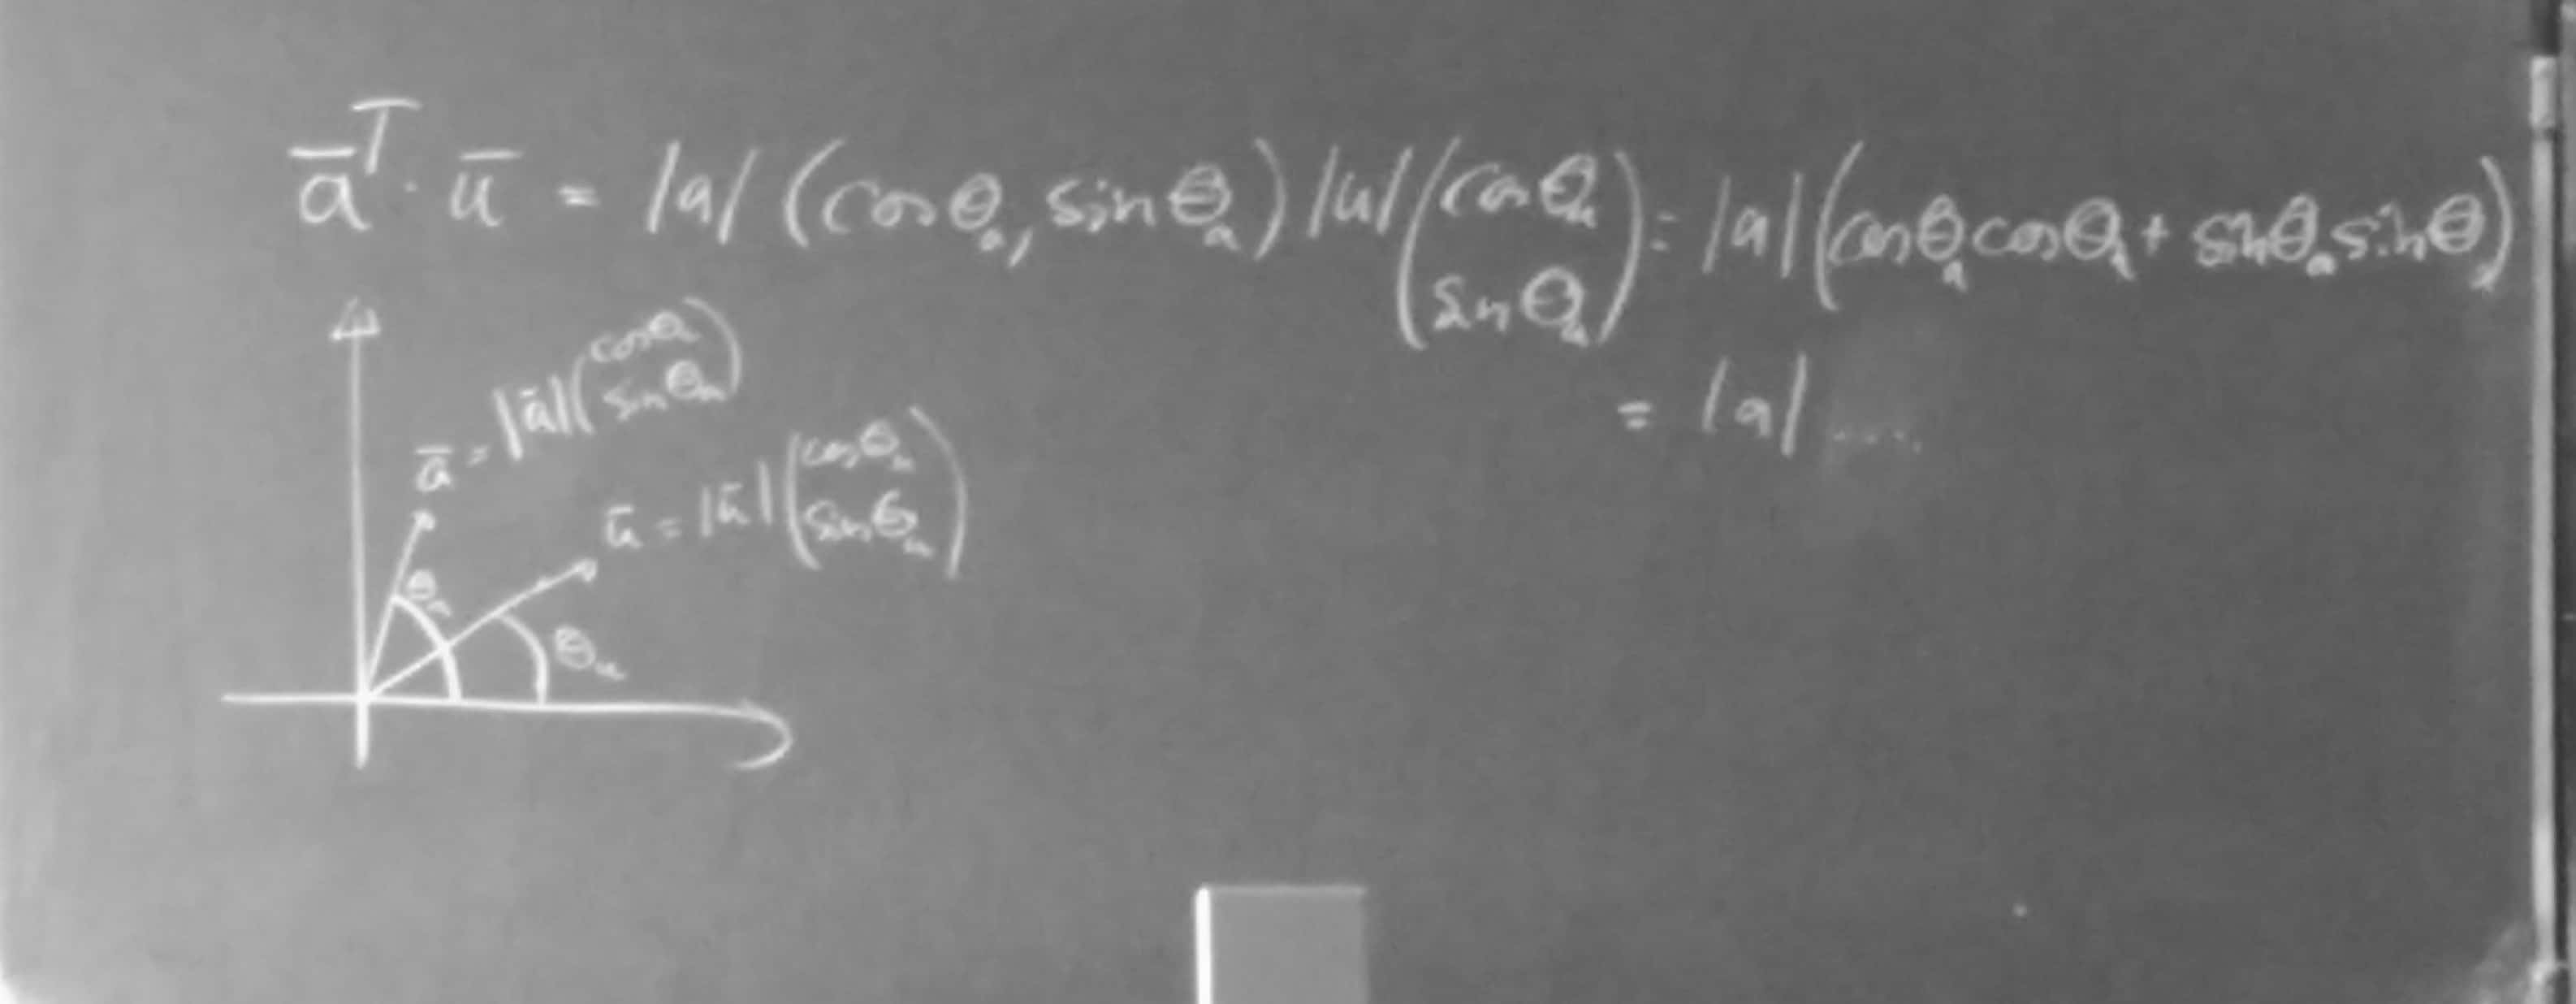 a̅ᵀ · u̅ = |a| (cosθₐ, sinθₐ) |u| (cosθᵤ = |a| (cosθₐcosθᵤ + sinθₐsinθᵤ)
sinθᵤ)
= |a| ....
a̅ = |a̅| (cosθₐ
sinθₐ)
u̅ = |u̅| (cosθᵤ
sinθᵤ)
θₐ
θᵤ